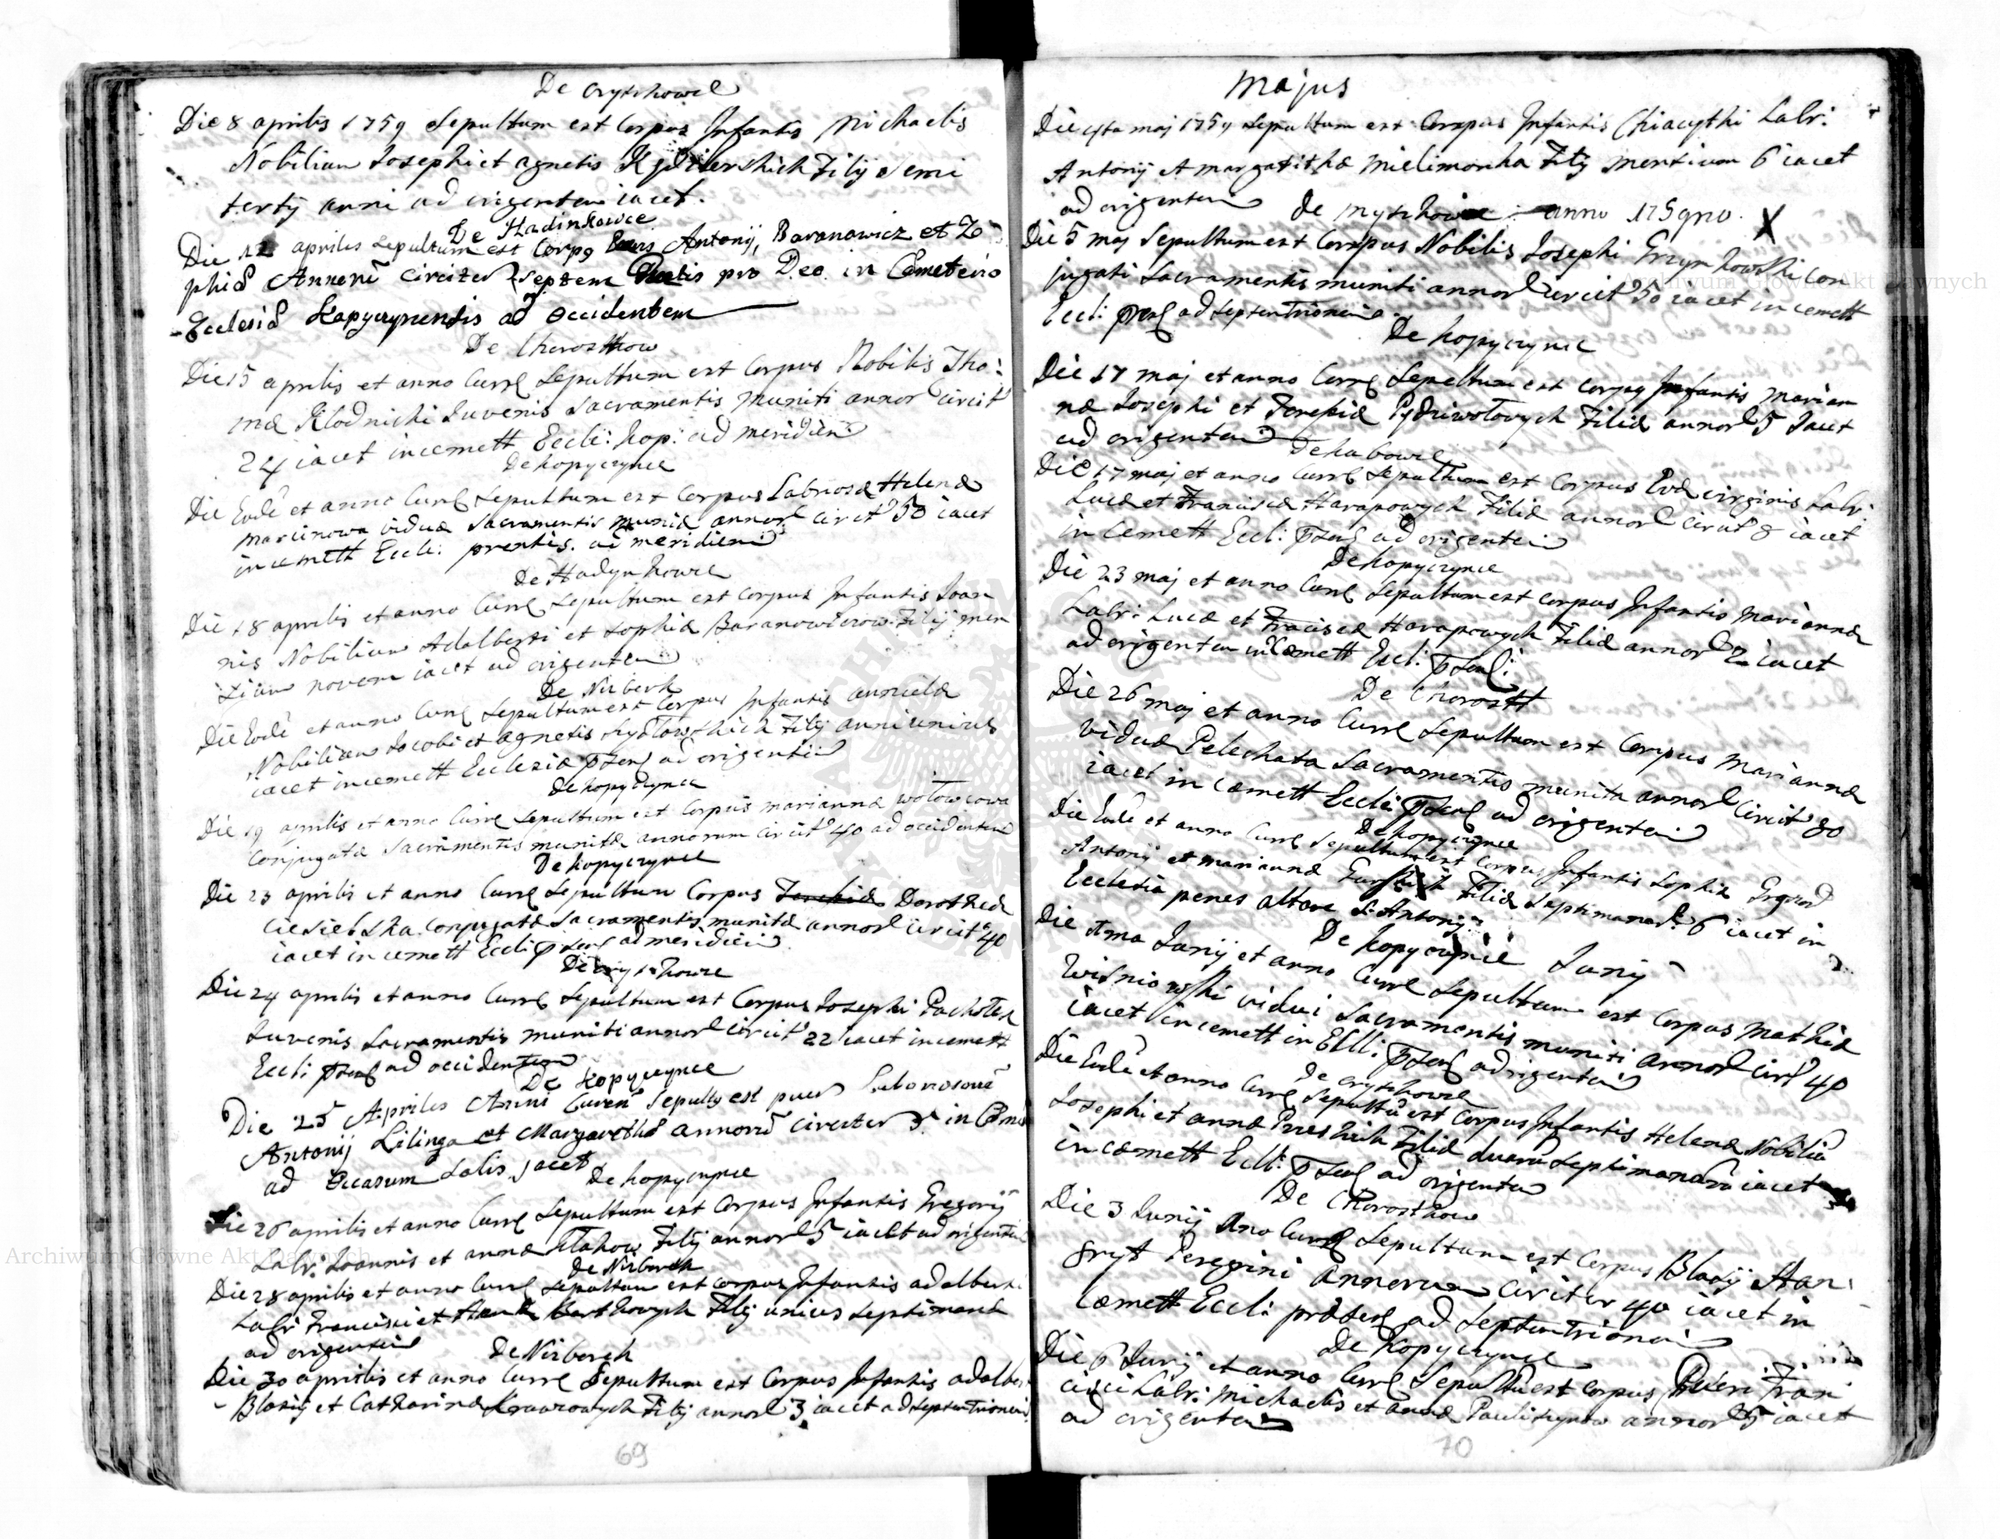 De Oryszkowce
Die 8 aprilis 1759 Sepultum est Corpus Infantis Michaelis
Nobilium Josephi et Agnetis Filij Semi
tertij anni ad origentem iacet.
De Hadinkowce
Die 12 aprilis Sepultum est Corpq Antonij, Baranowicz et Zo
phiæ Annorũ circiter Septem pro Deo in Cemeterio
Ecclesiæ Kopyczyncensis ad Occidentem
De Chorostkow
Die 15 aprilis et anno Curre Sepultum est Corpus Nobilis Tho
mæ Klodnicki Juvenis Sacramentis muniti annor circit
24 iacet in cemett Eccli: Kop: ad meridiem
De Kopyczynce
Die Eode et anno Curre Sepultum est Corpus Labriosæ Helenæ
Marcinowa viduæ Sacramentis munitæ annor circit 50 iacet
in cemett Eccli: prentis. ad meridiem
De Hadynkowce
Die 18 aprilis et anno Curre Sepultum est Corpus Infantis Joan
nis Nobilium Adalberti et Sophiæ Baranowiczow Filij men
sium novem iacet ad origentem
De Nizborh
Die Eode et anno Curre Sepultum est Corpus Infantis
Nobilium Jacobi et Agnetis Filij anni unius
iacet in cemett Ecclesiæ ad origentem
De Kopyczynce
Die 19 aprilis et anno Curre Sepultum est Corpus Mariannæ Wolowcowa
Conjugatæ Sacramentis munitæ annorum circit 40 ad occidentem
De Kopyczynce
Die 23 aprilis et anno Curre Sepultum Corpus Dorotheæ
Ciesielska conjugatæ Sacramentis munitæ annor circit 40
iacet in cemett Eccli ad meridiem
De Oryszkowce
Die 24 aprilis et anno Curre Sepultum est Corpus Josephi Pachołek
Juvenis Sacramentis muniti annor circit 22 iacet in cemett
Eccli ad occidentem
De Kopyczynce
Die 25 Aprilis Anni Curen Sepultq est puer Laboriosorũ
Antonij Lilinga et Margarethæ annorũ circiter 5 in Cæme
ad Occasum Solis jacet
De Kopyczynce
Die 26 aprilis et anno Curre Sepultum est Corpus Infantis Gregorij
Labr: Joannis et annæ Filij annor 5 iacet ad origentem
De Nizborch
Die 28 aprilis et anno Curre Sepultum est Corpus Infantis adalberti
Labr Francisci et Filij unius Septimanæ
ad origentem
De Nizborch
Die 30 aprilis et anno Curre Sepultum est Corpus Infantis adalber
Blasij et Catharinæ Krawcowych Filij annor 3 iacet ad Septentrionem
69
Majus
Die 4ta maj 1759 Sepultum est Corpus Infantis Chiacythi Labr:
Antonij et margarithæ Mielimonka Filij mensium 6 iacet
ad origentem
De Myszkowce anno 1759no. X
Die 5 maj Sepultum est Corpus Nobilis Josephi Grzymkowski con
jugati Sacramentis muniti annor circit 50 iacet in cemett
Eccli: ad Septentrionem
De Kopyczynce
Die 17 maj et anno Curre Sepultum est Corpq Infantis Marian
næ Josephi et Teresiæ Filiæ annor 5 Iacet
ad origentem
De Kabowce
Die 17 maj et anno Curre Sepultum est Corpus Evæ virginis Labr:
Lucæ et Franciscæ Harapowych Filiæ annor circit 8 iacet
in cemett Eccli: ad origentem
De Kopyczynce
Die 23 maj et anno Curre Sepultum est Corpus Infantis Mariannæ
Labr: Lucæ et Fraciscæ Harapowych Filiæ annor 2 iacet
ad origentem in Cæmett Eccl:
De Chorostk
Die 26 maj et anno Curre Sepultum est Corpus Mariannæ
viduæ Pelechata Sacramentis munita annor circit 80
iacet in cæmett Eccli: ad origentem
De Kopyczynce
Die Eode et anno Curre Sepultum est Corpus Infantis Sophiæ
Antonij et Mariannæ Filiæ Septimanar: 6 iacet in
Ecclesia penes altare S. Antonij
De Kopyczynce Junij
Die 1ma Junij et anno Curre Sepultum est Corpus Mathiæ
Wisniowski vidui Sacramentis muniti annor circ 40
iacet in cemett in Eccli: ad origentem
De Oryszkowce
Die Eode et anno Curre Sepultũ est Corpus Infantis Helenæ Nobiliũ
Josephi et annæ Filiæ duarũ Septimanarũ iacet
in cæmett Eccli: ad origentem
De Chorostkow
Die 3 Junij Ano Curre Sepultum est Corpus Blasij
Peregrini Annorum circiter 40 iacet in
cæmett Eccli ad Septentrionem
De Kopyczynce
Die 6 Junij et anno Curre Sepultũ est Corpus Pueri Fran
cisci Labr: Michaelis et Annæ annor 5 iacet
ad origentem
70
Archiwum Główne Akt Dawnych
Archiwum Główne Akt Dawnych